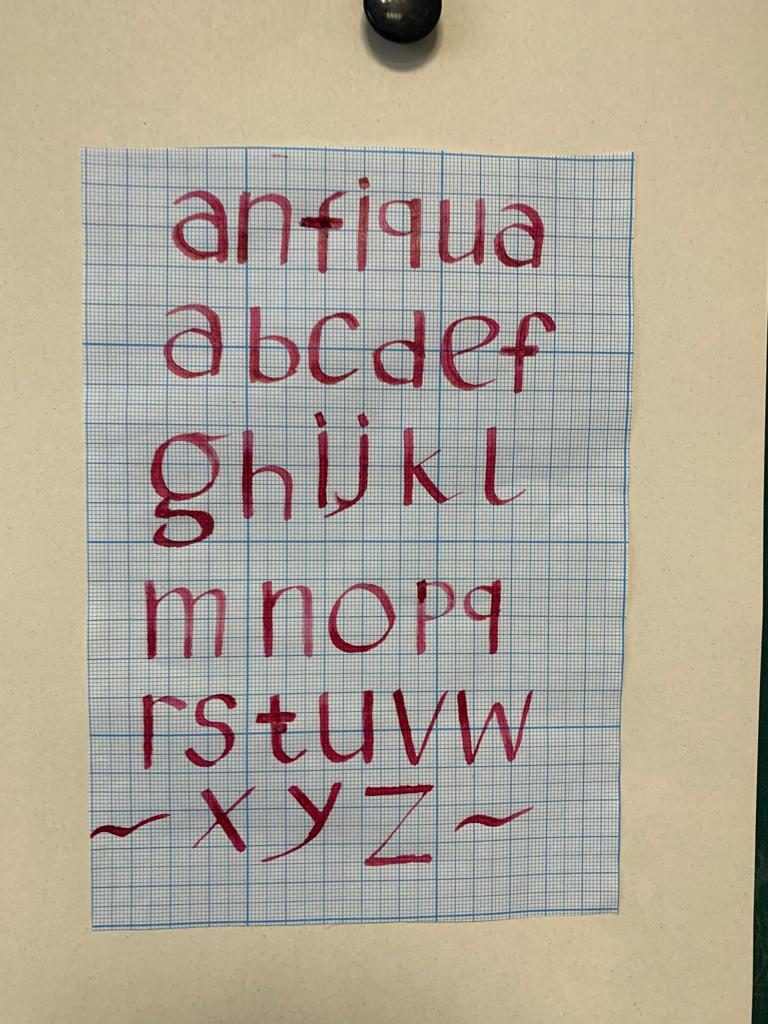 antiqua
abcdef
ghijkl
mnopq
rstuvw
~ x y z ~